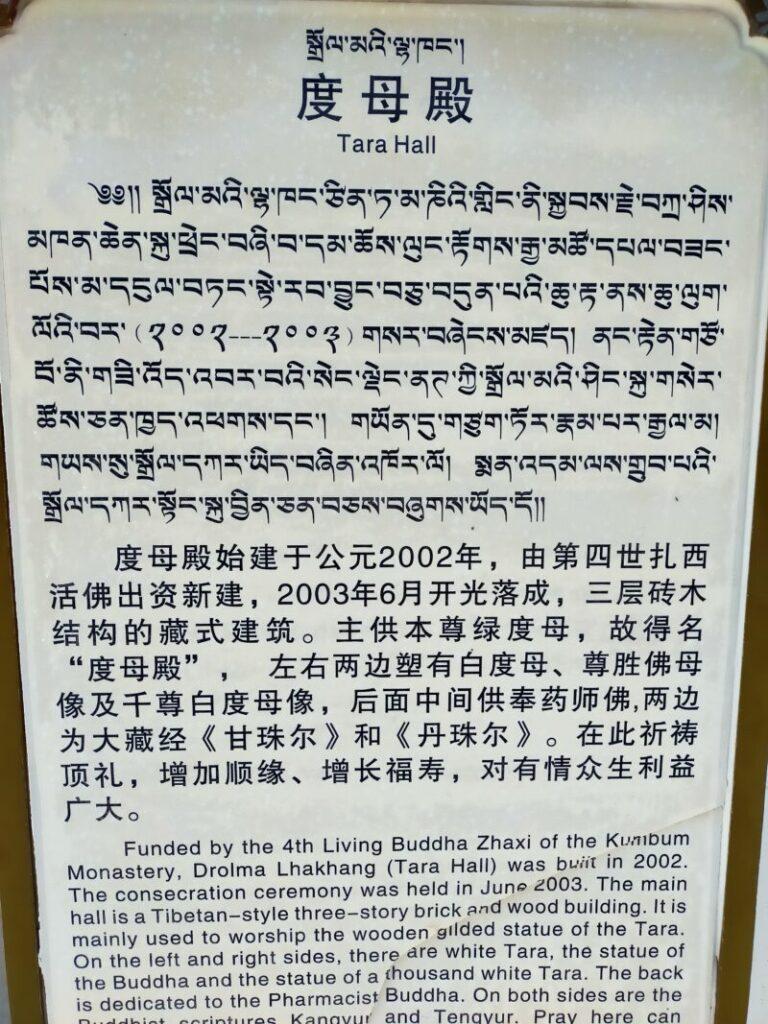 སྒྲོལ་མའི་ལྷ་ཁང་།
度母殿
Tara Hall
༄༅།། སྒྲོལ་མའི་ལྷ་ཁང་ཙིན་ཏ་མ་ཎིའི་གླིང་ནི་སྐྱབས་རྗེ་བཀྲ་ཤིས་
མཁན་ཆེན་སྐུ་ཕྲེང་བཞི་བ་དམ་ཆོས་ལུང་རྟོགས་རྒྱ་མཚོ་དཔལ་བཟང་
པོས་མ་དངུལ་བཏང་སྟེ་རབ་བྱུང་བཅུ་བདུན་པའི་ཆུ་རྟ་ནས་ཆུ་ལུག་
ལོའི་བར་(༢༠༠༢---༢༠༠༣)གསར་བཞེངས་མཛད། ནང་རྟེན་གཙོ་
བོ་ནི་གཟི་འོད་འབར་བའི་སེང་ལྡེང་ནགས་ཀྱི་སྒྲོལ་མའི་ཤིང་སྐུ་གསེར་
ཚོས་ཅན་ཁྱད་འཕགས་དང་། གཡོན་དུ་གཙུག་ཏོར་རྣམ་པར་རྒྱལ་མ།
གཡས་སུ་སྒྲོལ་དཀར་ཡིད་བཞིན་འཁོར་ལོ། སྨན་འདམ་ལས་གྲུབ་པའི་
སྒྲོལ་དཀར་སྟོང་སྐུ་བྱིན་ཅན་བཅས་བཞུགས་ཡོད་དོ།།
度母殿始建于公元2002年，由第四世扎西
活佛出资新建，2003年6月开光落成，三层砖木
结构的藏式建筑。主供本尊绿度母，故得名
“度母殿”， 左右两边塑有白度母、尊胜佛母
像及千尊白度母像，后面中间供奉药师佛,两边
为大藏经《甘珠尔》和《丹珠尔》。在此祈祷
顶礼，增加顺缘、增长福寿，对有情众生利益
广大。
Funded by the 4th Living Buddha Zhaxi of the Kumbum
Monastery, Drolma Lhakhang (Tara Hall) was built in 2002.
The consecration ceremony was held in June 2003. The main
hall is a Tibetan-style three-story brick and wood building. It is
mainly used to worship the wooden gilded statue of the Tara.
On the left and right sides, there are white Tara, the statue of
the Buddha and the statue of a thousand white Tara. The back
is dedicated to the Pharmacist Buddha. On both sides are the
Buddhist scriptures Kangyur and Tengyur. Pray here can